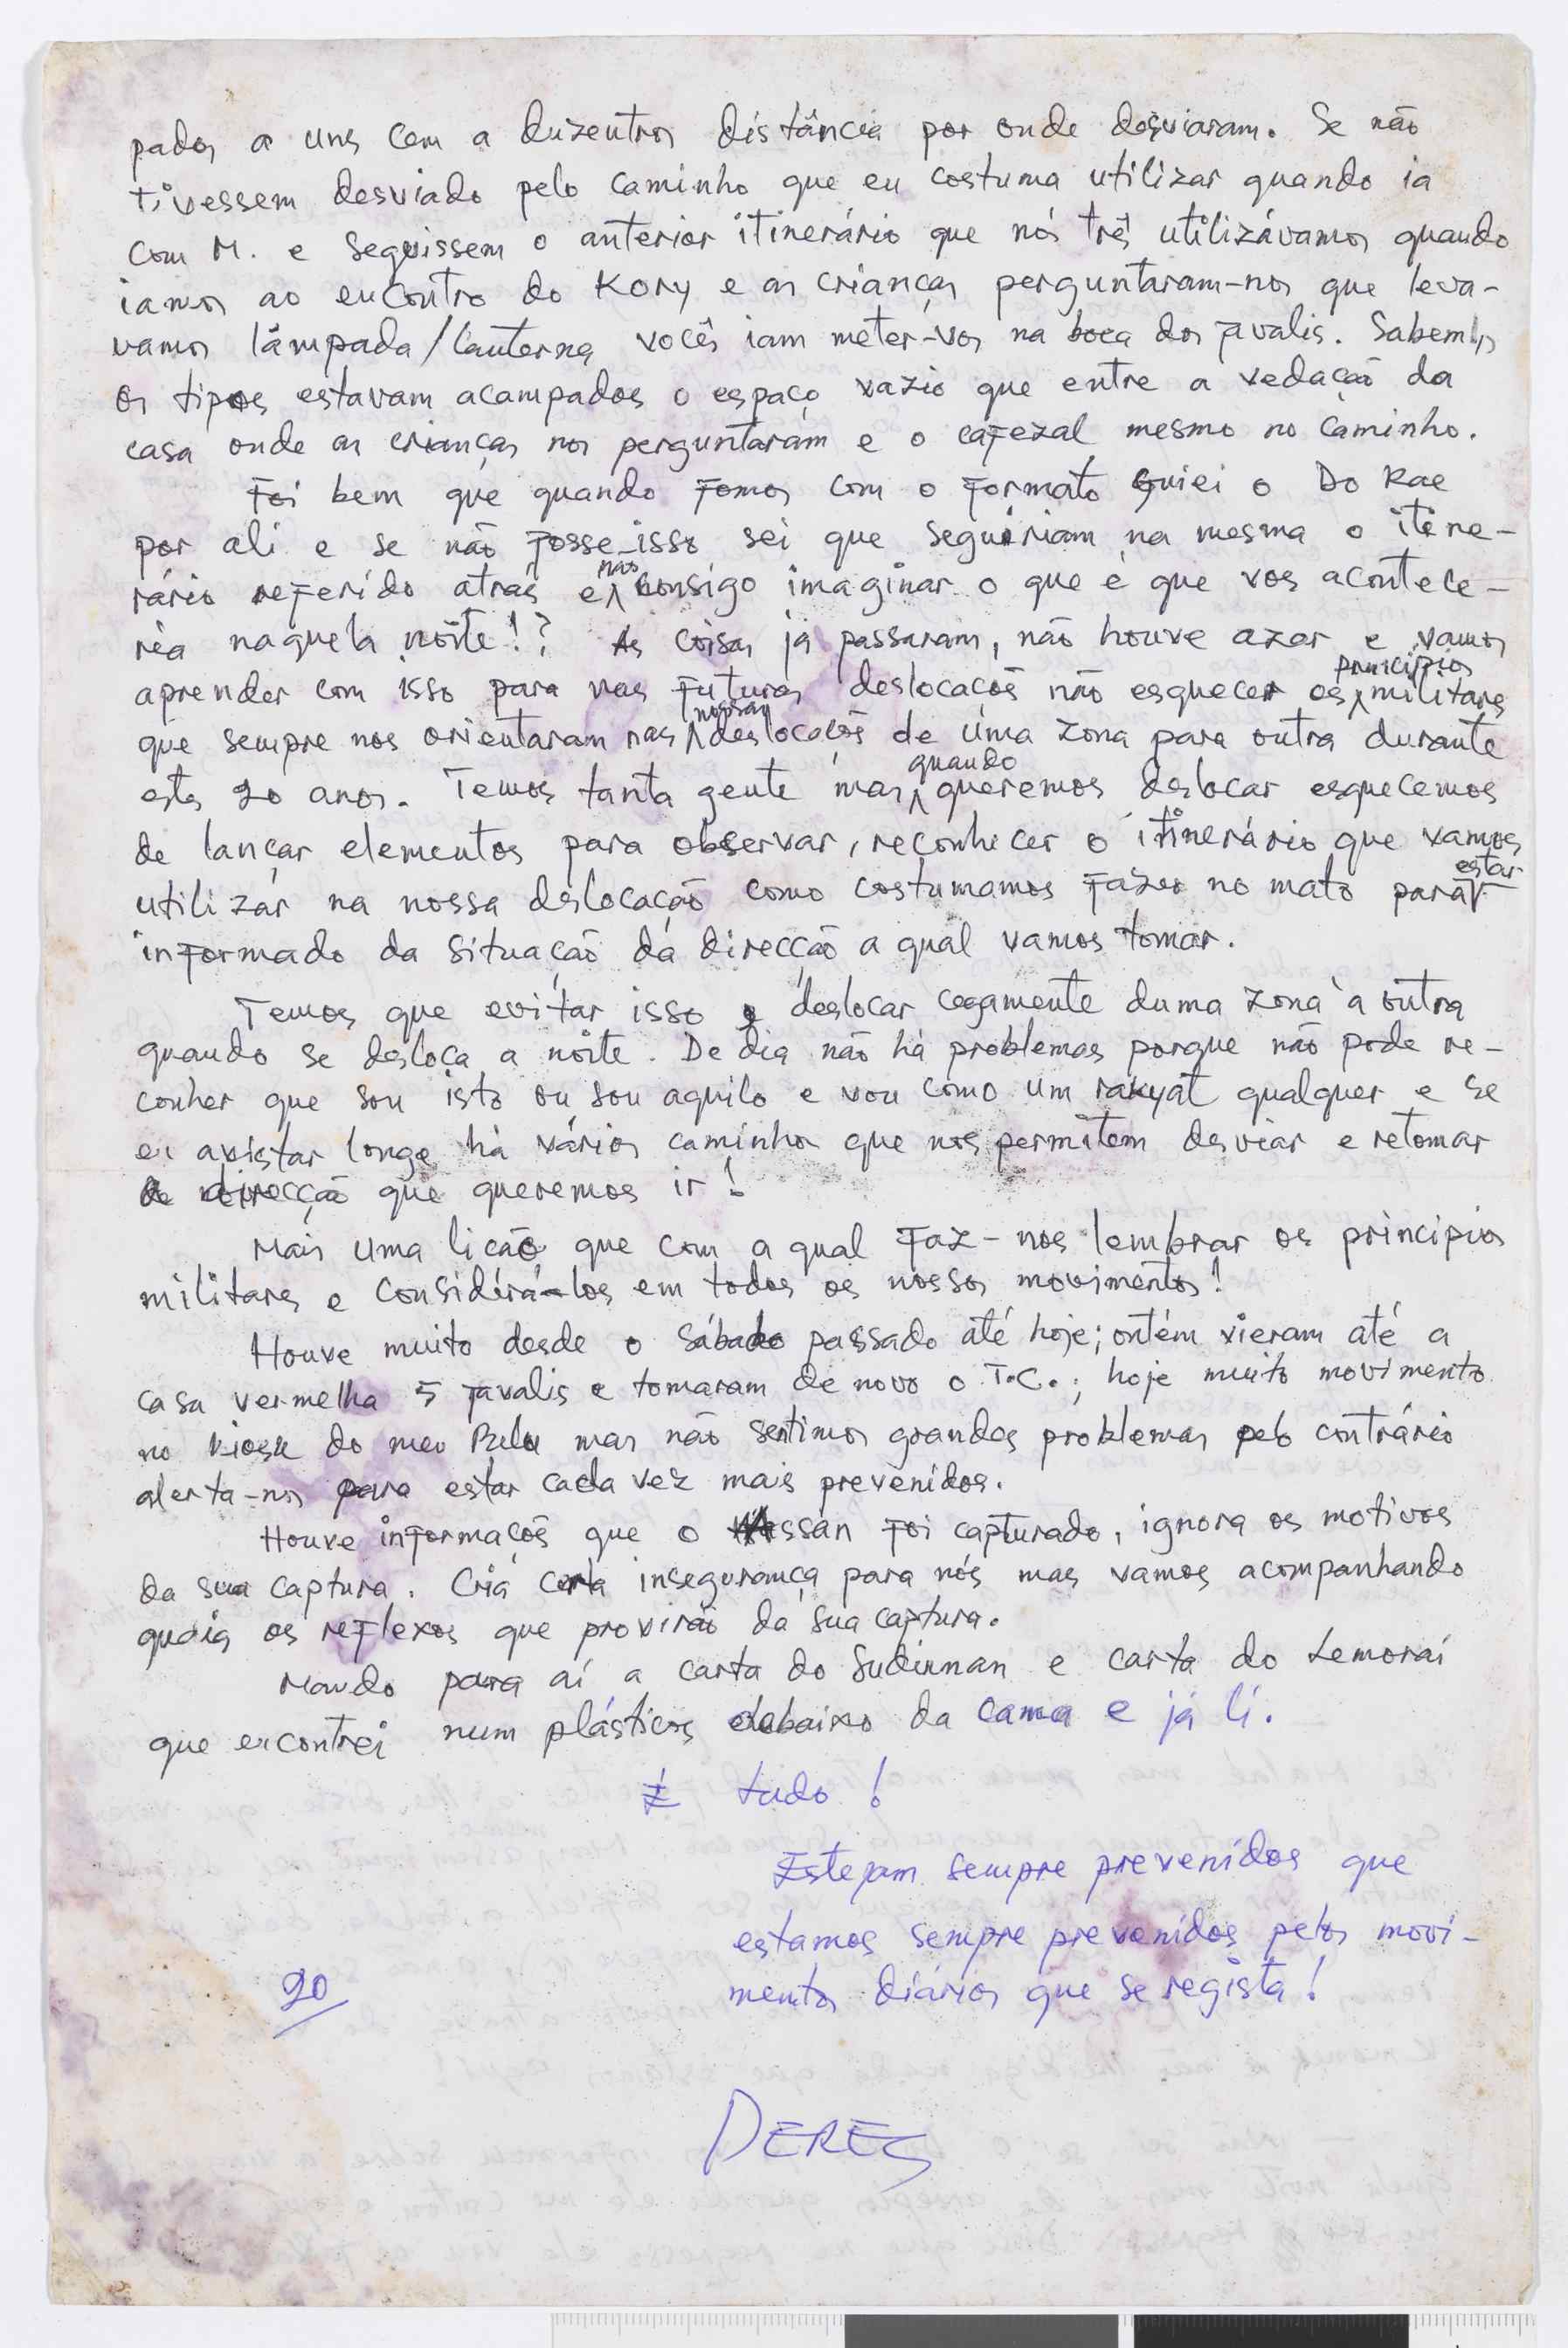 pados a uns cem a duzentos distância por onde desviaram. Se não
tivessem desviado pelo caminho que eu costuma utilizar quando ia
com M. e seguissem o anterior itinerário que nós três utilizávamos quando
iamos ao encontro do Kory e as crianças perguntaram-nos que leva-
vamos lâmpada/lanterna vocês iam meter-vos na boca dos javalis. Sabem,
os tipos estavam acampados o espaço vazio que entre a vedação da
casa onde as crianças nos perguntaram e o cafezal mesmo no caminho.
Foi bem que quando fomos com o Formato guiei o Do Rae
por ali e se não fosse isso sei que seguiriam na mesma o itine-
rário referido atrás e não consigo imaginar o que é que vos acontece-
ria naquela noite!? As coisas já passaram, não houve azar e vamos
aprender com isso para nas futuras deslocações não esquecer os principios militares
que sempre nos orientaram nas nossas deslocações de uma zona para outra durante
estes 20 anos. Temos tanta gente mas quando queremos deslocar esquecemos
de lançar elementos para observar, reconhecer o itinerário que vamos
utilizar na nossa deslocação como costumamos fazer no mato para estar
informado da situação da direcção a qual vamos tomar.
Temos que evitar isso e deslocar cegamente duma zona à outra
quando se desloca a noite. De dia não há problemas porque não pode re-
conher que sou isto ou sou aquilo e vou como um rakyat qualquer e se
eu avistar longe há vários caminhos que nos permitem desviar e retomar
a direcção que queremos ir!
Mais uma lição que com a qual faz-nos lembrar os principios
militares e considerá-los em todos os nossos movimentos!
Houve muito desde o sábado passado até hoje; ontém vieram até a
casa vermelha 5 javalis e tomaram de novo o T.C.; hoje muito movimento
no kiosk do meu Pulu mas não sentimos grandes problemas pelo contrário
alerta-nos para estar cada vez mais prevenidos.
Houve informações que o Assan foi capturado, ignora os motivos
da sua captura. Cria certa insegurança para nós mas vamos acompanhando
quais os reflexos que provirão da sua captura.
Mando para aí a carta do Sudirman e carta do Lemorai
que encontrei num plásticos debaixo da cama e já li.
É tudo!
Estejam sempre prevenidos que
estamos sempre prevenidos pelos movi-
mentos diários que se regista!
20
DERES